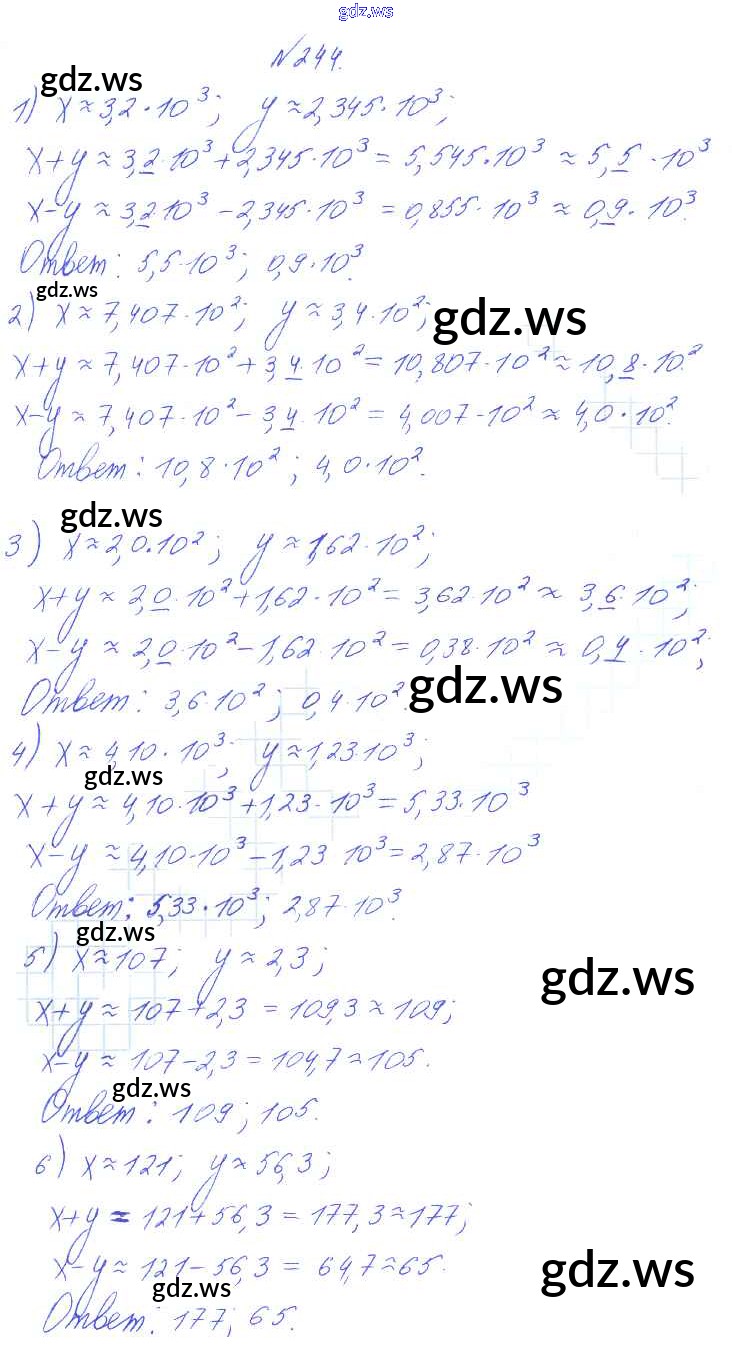 gdz.ws
№244.
gdz.ws
1) x≈3,2·10³; y≈2,345·10³;
x+y≈3,2·10³+2,345·10³=5,545·10³≈5,5·10³
x-y≈3,2·10³-2,345·10³=0,855·10³≈0,9·10³.
Ответ: 5,5·10³; 0,9·10³.
gdz.ws
2) x≈7,407·10²; y≈3,4·10²;
gdz.ws
x+y≈7,407·10²+3,4·10²=10,807·10²≈10,8·10²
x-y≈7,407·10²-3,4·10²=4,007·10²≈4,0·10².
Ответ: 10,8·10²; 4,0·10².
gdz.ws
3) x≈2,0·10²; y≈1,62·10²;
x+y≈2,0·10²+1,62·10²=3,62·10²≈3,6·10²;
x-y≈2,0·10²-1,62·10²=0,38·10²≈0,4·10²;
Ответ: 3,6·10²; 0,4·10².
gdz.ws
4) x≈4,10·10³; y≈1,23·10³;
gdz.ws
x+y≈4,10·10³+1,23·10³=5,33·10³
x-y≈4,10·10³-1,23·10³=2,87·10³
Ответ: 5,33·10³; 2,87·10³.
gdz.ws
5) x≈107; y≈2,3;
gdz.ws
x+y≈107+2,3=109,3≈109;
x-y≈107-2,3=104,7≈105.
gdz.ws
Ответ: 109; 105.
6) x≈121; y≈56,3;
x+y=121+56,3=177,3≈177;
x-y≈121-56,3=64,7≈65.
gdz.ws
gdz.ws
Ответ: 177; 65.